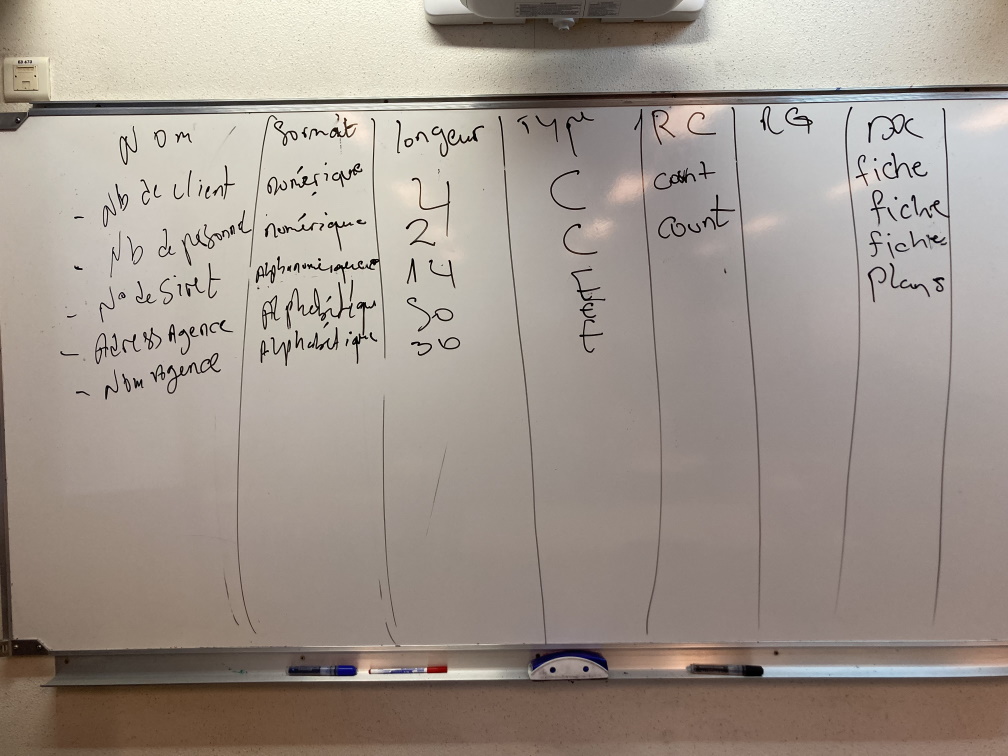 Nom format longeur Type RC RG DOC
- Nb de client numérique 4 C count fiche
- Nb de personnel numérique 2 C count fiche
- N° de Siret Alphanumérique 14 E fiche
- Adress Agence Alphabétique 50 E plans
- Nom Agence Alphabétique 30 E